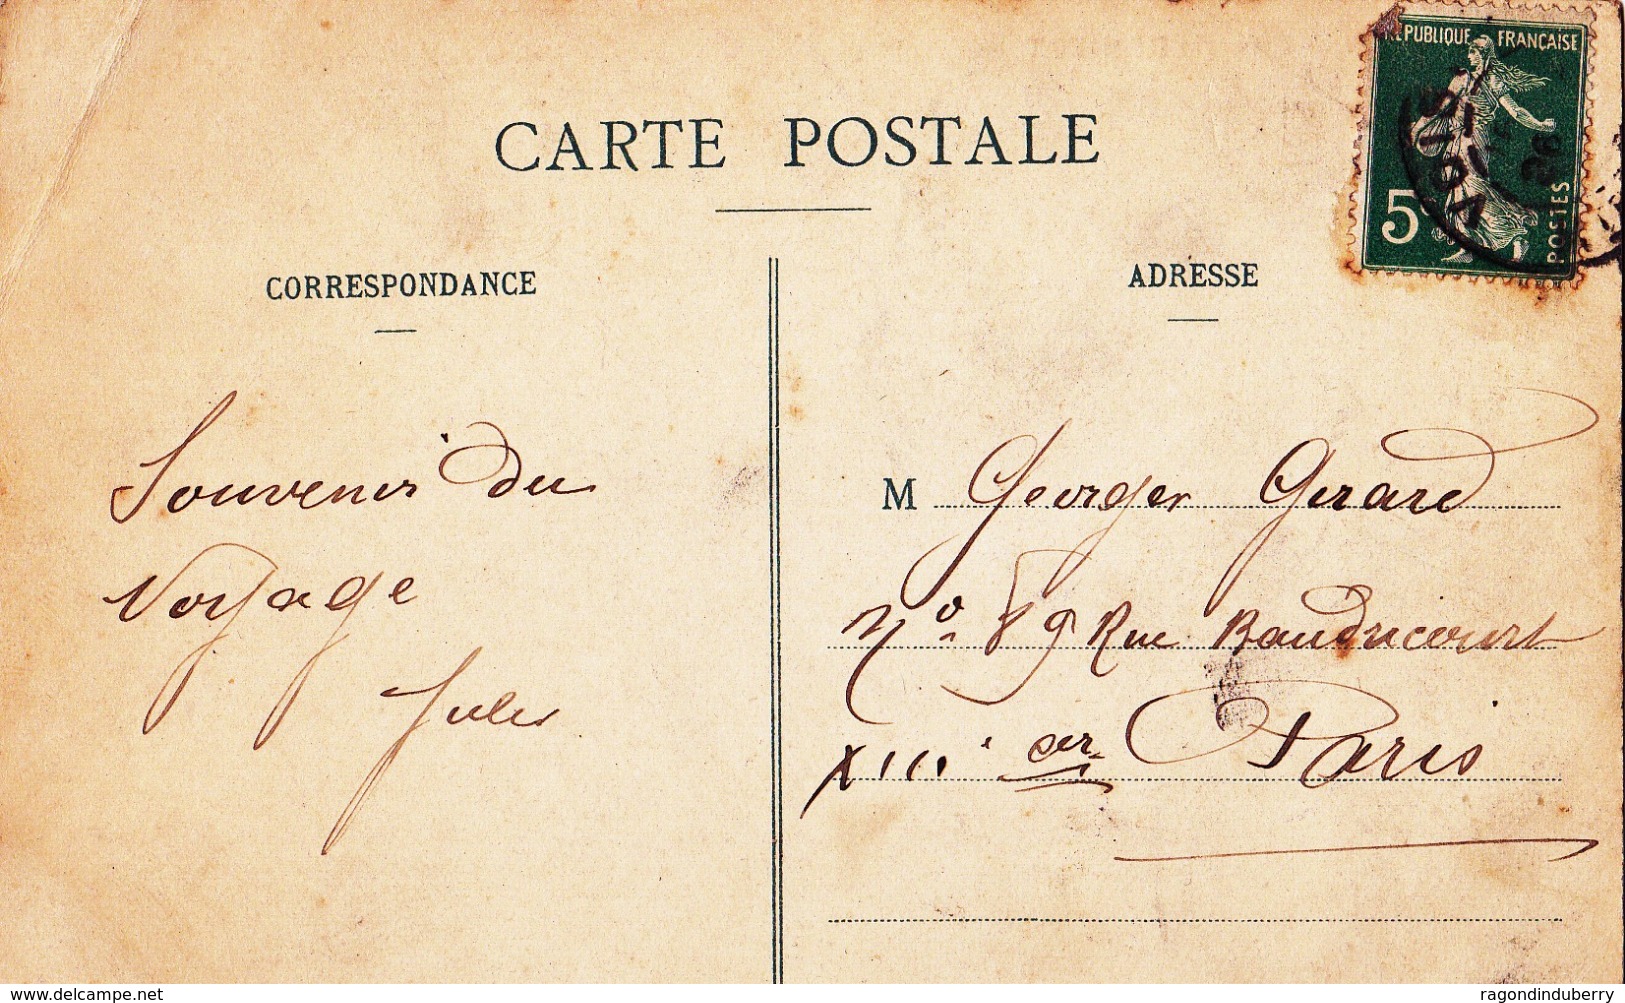 CARTE POSTALE
RÉPUBLIQUE FRANÇAISE
5c
POSTES
CORRESPONDANCE
ADRESSE
Souvenir du
Voyage
Jules
M Georges Girard
No 89 Rue Baudricourt
XIIIe arr Paris
www.delcampe.net
ragondinduberry